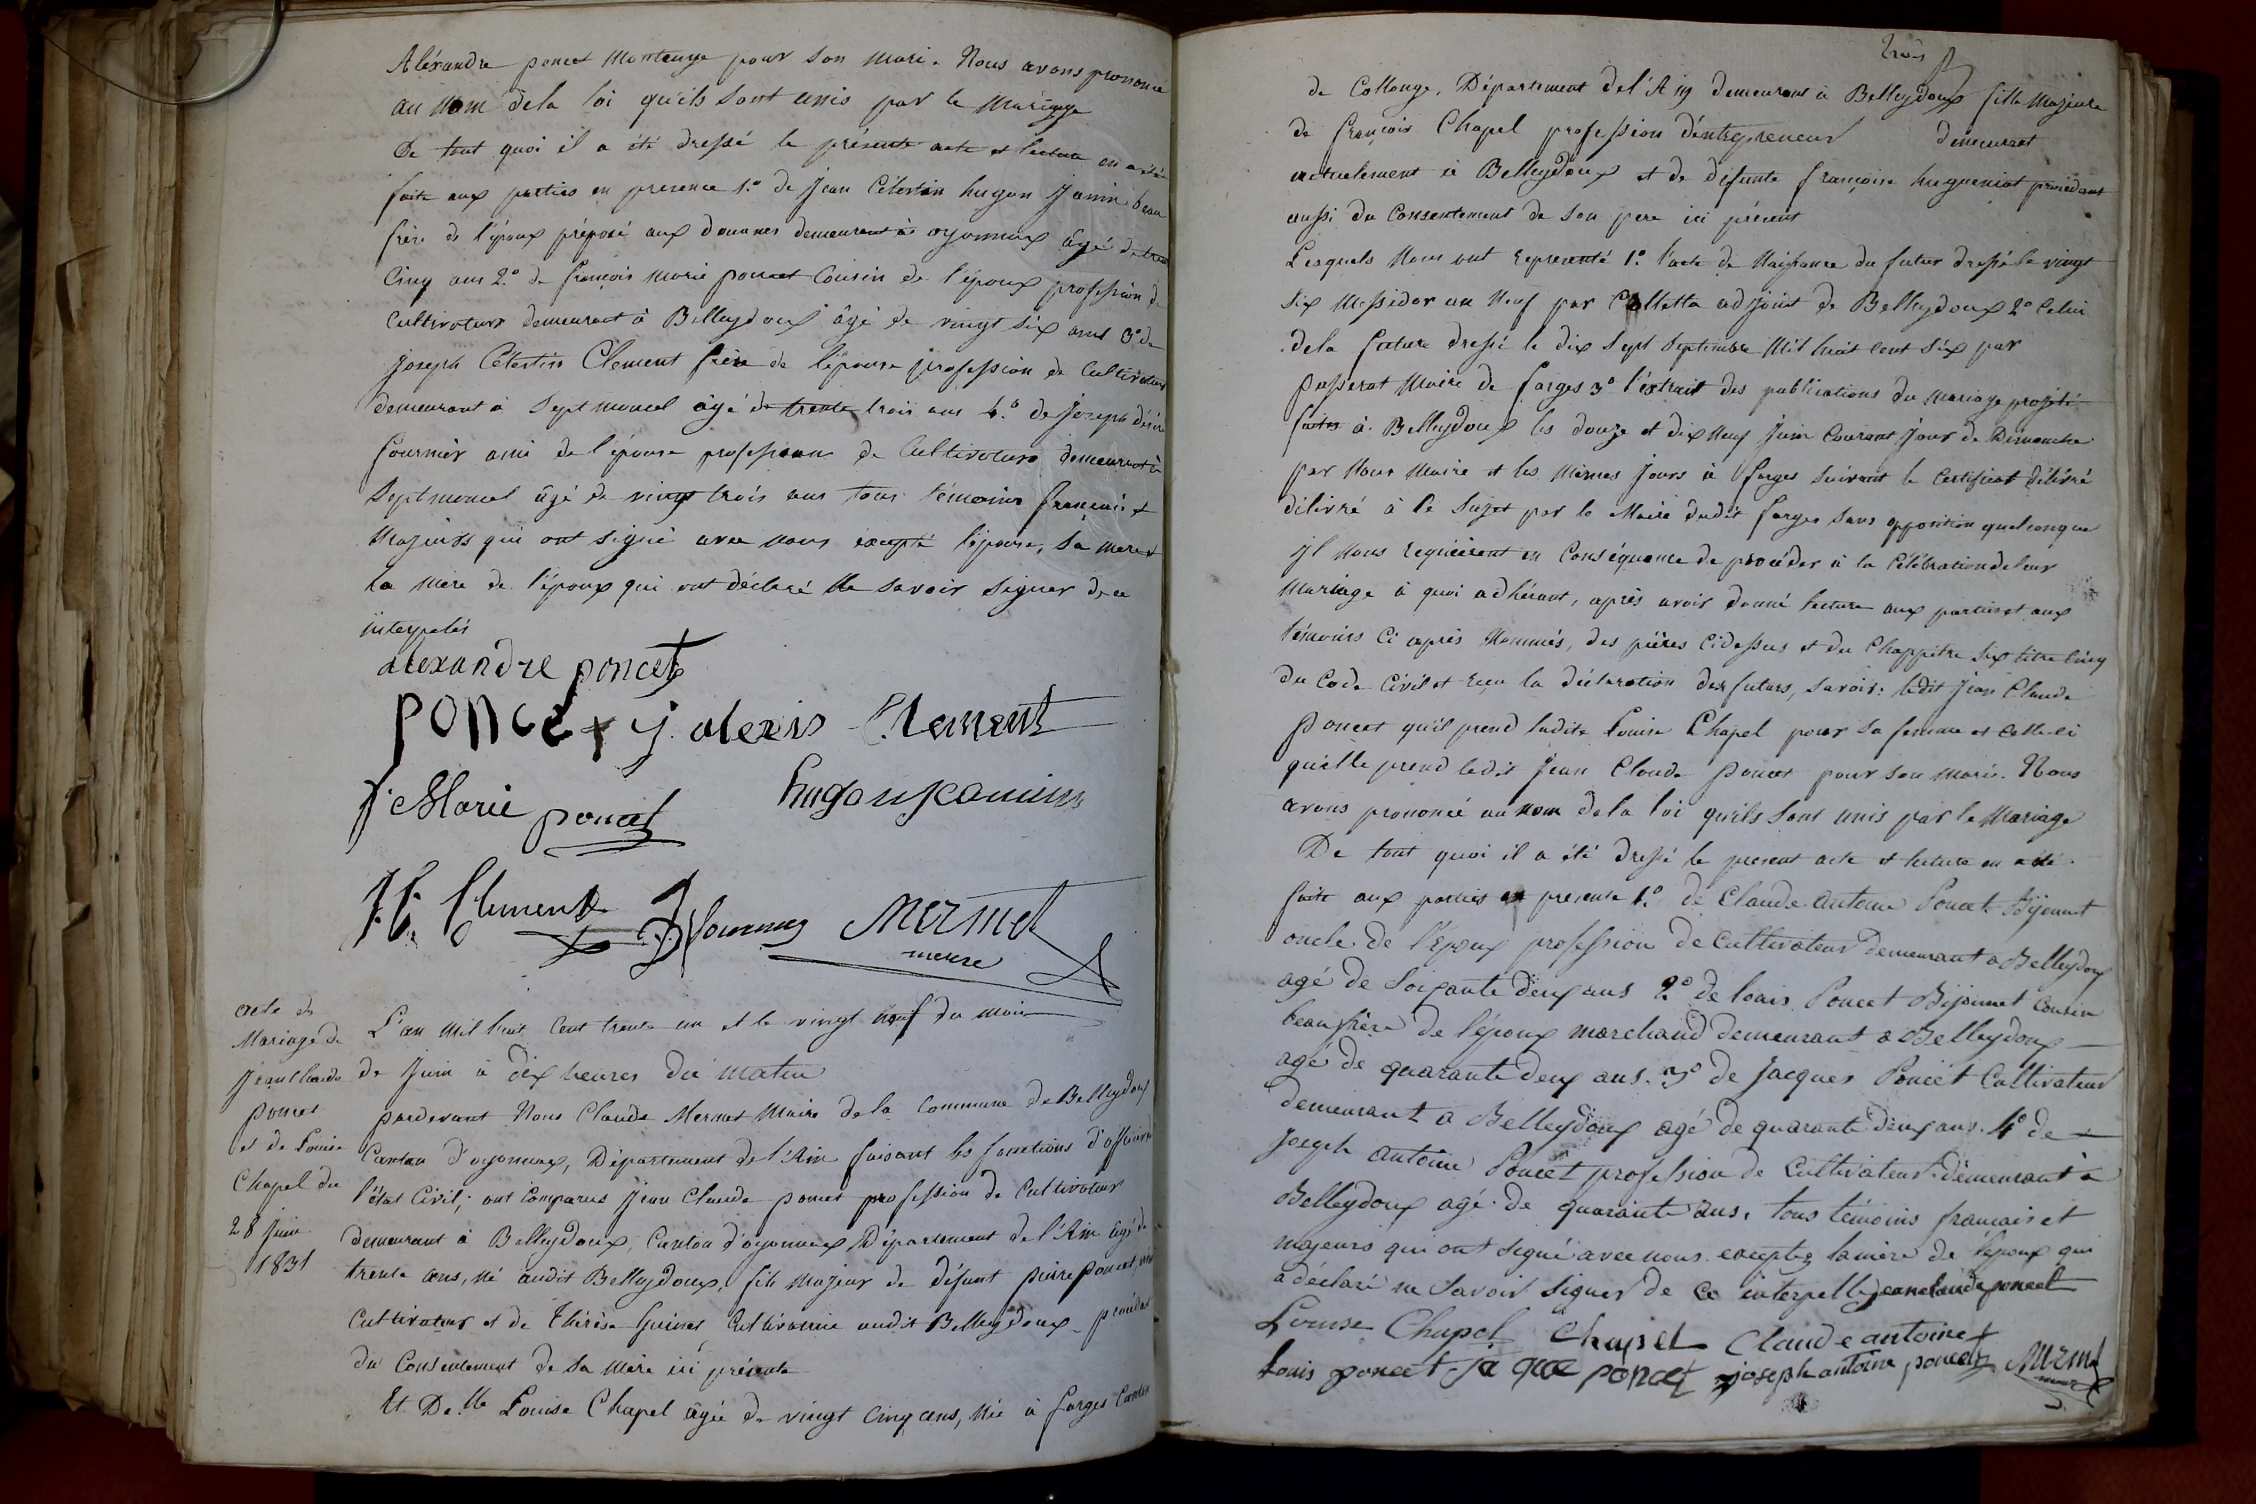 Aléxandre poncet Montange pour son mari. Nous avons prononcé
au Nom dela loi qu'ils sont unis par le Mariage
De tout quoi il a été dressé le présente acte et lecture en a été
faite aux parties en presence 1.º de Jean Célestin hugon Jannin beau
frère de l'époux préposé aux douanes demeurant à oyonnax âgé de trente
Cinq ans 2.º de françois Marie poncet Cousin de l'époux profession de
Cultivateur demeurant à Belleydoux âgé de vingt six ans 3º de
joseph Célestin Clement frère de l'épouse profession de Cultivateur
demeurant à Septmoncel âgé de trente trois ans 4.º de Joseph désiré
fournier ami de l'épouse profession de Cultivateur demeurant à
Septmoncel âgé de vingt trois ans tous témoins français et
Majeurs qui ont signé avec nous excepté l'épouse, sa mere et
la mère de l'époux qui ont déclaré ne savoir signer de ce
interpelés
alexandre poncet
poncet j. alexis Clement
f. Marie poncet hugon jeannin
J. C. Clement JD fournier Mermet
meire
acte de
Mariage de
Jean Claude
poncet
et de Louise
Chapel du
28 Juin
1831
L'an Mil huit Cent trente un et le vingt neuf du mois
de Juin à dix heures du matin
pardevant Nous Claude Mermet Maire dela Commune de Belleydoux
Canton d'oyonnax, Département de l'Ain faisant les fonctions d'officier de
l'état Civil; ont Comparus Jean Claude poncet profession de Cultivateur
demeurant à Belleydoux, Canton d'oyonnax Département de l'Ain âgé de
trente ans, né audit Belleydoux, fils Majeur de défunt pierre poncet,
Cultivateur et de Thérèse Cultivatrice audit Belleydoux procédant
du Consentement de sa Mère ici présente
Et De.lle Louise Chapel âgée de vingt Cinq ans, Née à farges Canton
trois
de Collonge, Département del'Ain demeurant à Belleydoux fille Majeure
de françois Chapel profession d'entrepreneur demeurant
actuelement à Belleydoux et de défunte françoise hugueniot procédant
aussi du Consentement de son pere ici présent
Lesquels Nous ont representé 1.º l'acte de Naissance du futur dressé le vingt
six Messidor an Neuf par Colletta adjoint de Belleydoux 2º Celui
dela future dressé le dix sept septembre Mil huit cent six par
passerat Maire de farges 3º l'extrait des publications du Mariage projeté
faites à Belleydoux les douze et dix Neuf Juin Courant Jour de Dimanche
par Nous Maire et les Mêmes Jours à farges suivant le Certificat délivré
délivré à Ce sujet par le Maire dudit farges sans opposition quelconque
yl Nous requierent en Conséquence de procéder à la Célébration de leur
Mariage à quoi adhérant, après avoir donné lecture aux parties et aux
témoins Ci après Nommés, des pièces Cidessus et du Chappitre six titre Cinq
du Code Civil et reçu la déclaration des futurs, savoir: ledit Jean Claude
poncet qu'il prend ladite Louise Chapel pour sa femme et Celle-ci
qu'elle prend ledit Jean Claude poncet pour son Mari. Nous
avons prononcé au Nom dela loi qu'ils sont unis par le Mariage
De tout quoi il a été dressé le present acte et lecture en a été
faite aux parties en presence 1.º de Claude antoine Poncet Bijounet
oncle de l'Epoux profession de Cultivateur demeurant a Belleydoux
agé de soixante deux ans 2.º de louis Poncet Bijounet Cousin
beau frère de l'époux marchand demeurant a Belleydoux
agé de quarante deux ans. 3º de Jacques Poncet Cultivateur
demeurant a Belleydoux agé de quarante deux ans. 4º de
Joseph antoine Poncet profession de Cultivateur demeurant à
Belleydoux agé de quarante ans. tous témoins français et
majeurs qui ont signé avec nous exceptez la mère de l'époux qui
a déclaré ne savoir signer de ce interpellé jeanclaude poncet
Louise Chapel Chapel Claude antoine
louis poncet Ja que poncet joseph antoine poncet Mermet
meire